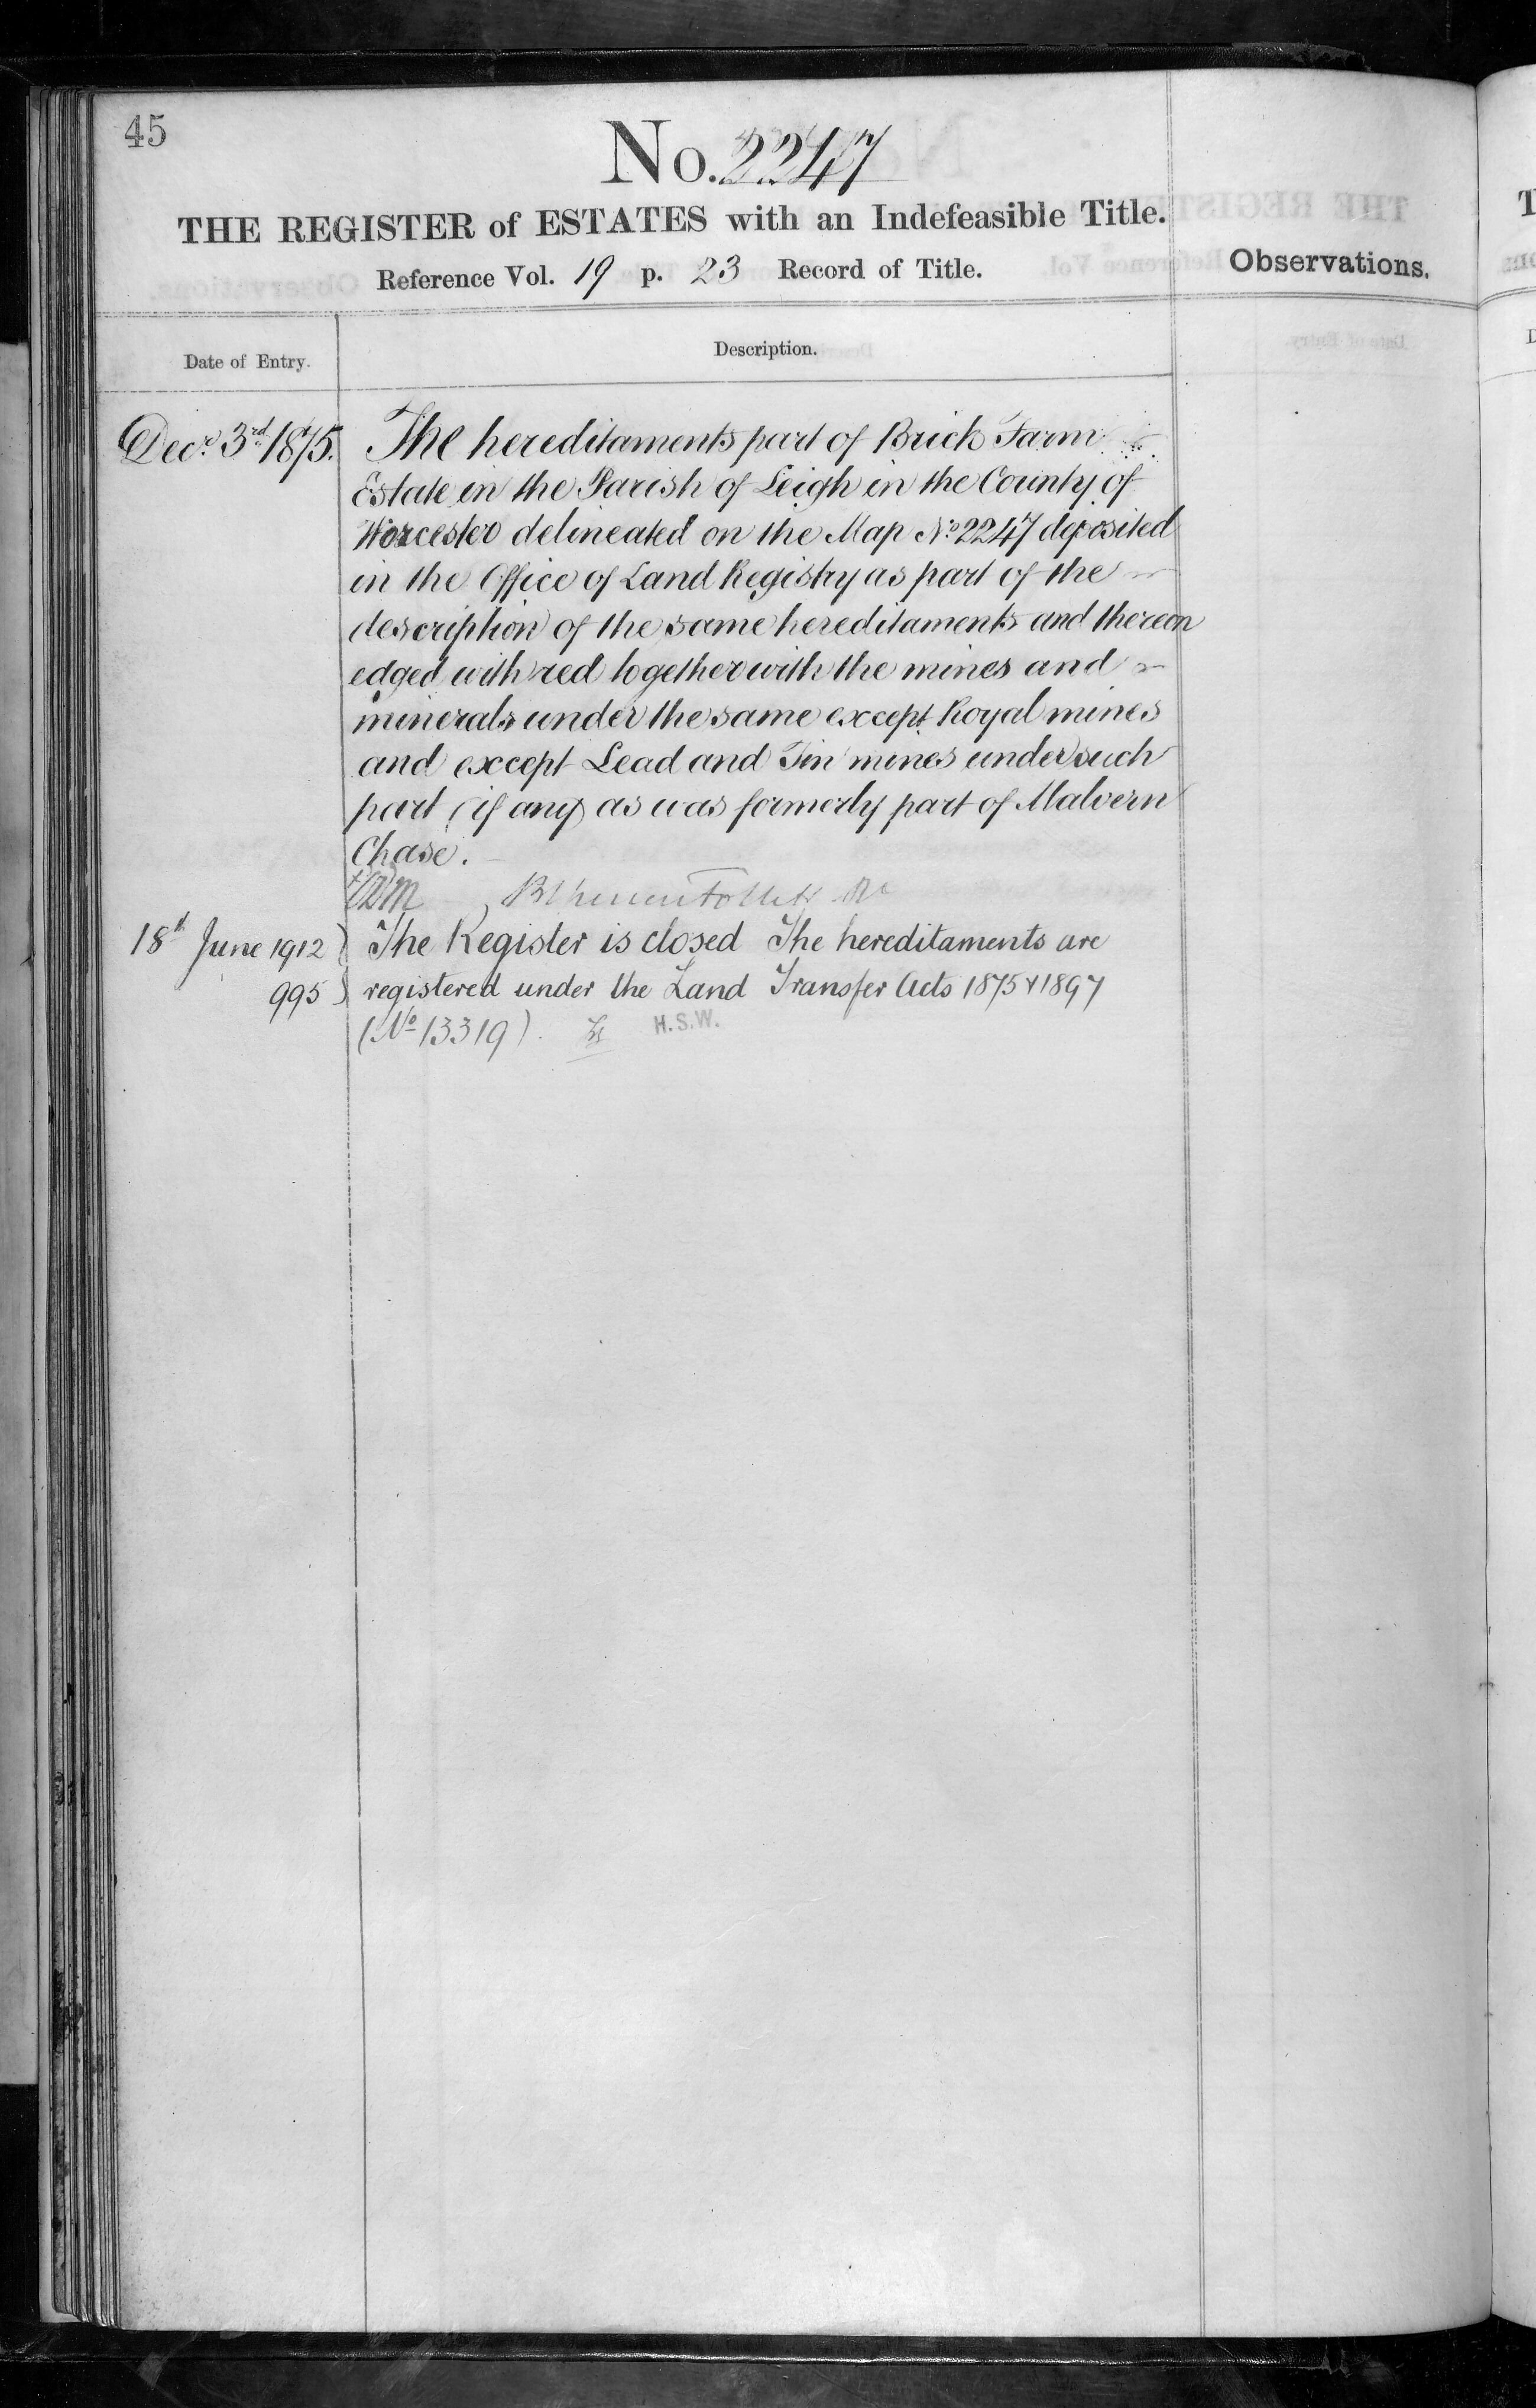 45
No. 2247
THE REGISTER of ESTATES with an Indefeasible Title.
Reference Vol. 19 p. 23 Record of Title.
Observations.
Date of Entry.
Description.
Decr. 3rd 1875.
The hereditaments part of Brick Farm
Estate in the Parish of Leigh in the County of
Worcester delineated on the Map No 2247 deposited
in the Office of Land Registry as part of the
description of the same hereditaments and thereon
edged with red together with the mines and
minerals under the same except Royal mines
and except Lead and Tin mines under such
part (if any) as was formerly part of Malvern
Chase.
18th June 1912
995
The Register is closed The hereditaments are
registered under the Land Transfer Acts 1875 & 1897
(No 13319). H.S.W.